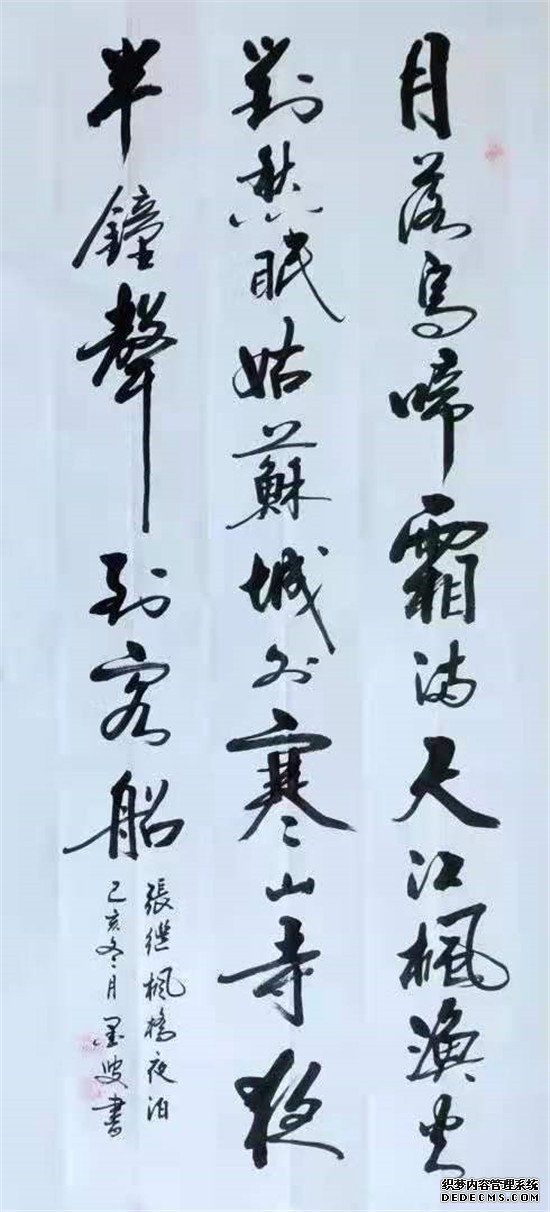 月落烏啼霜滿天江楓漁火
對愁眠姑蘇城外寒山寺夜
半鐘聲到客船
張继楓橋夜泊
己亥冬月墨叟書
织梦内容管理系统
DEDECMS.COM